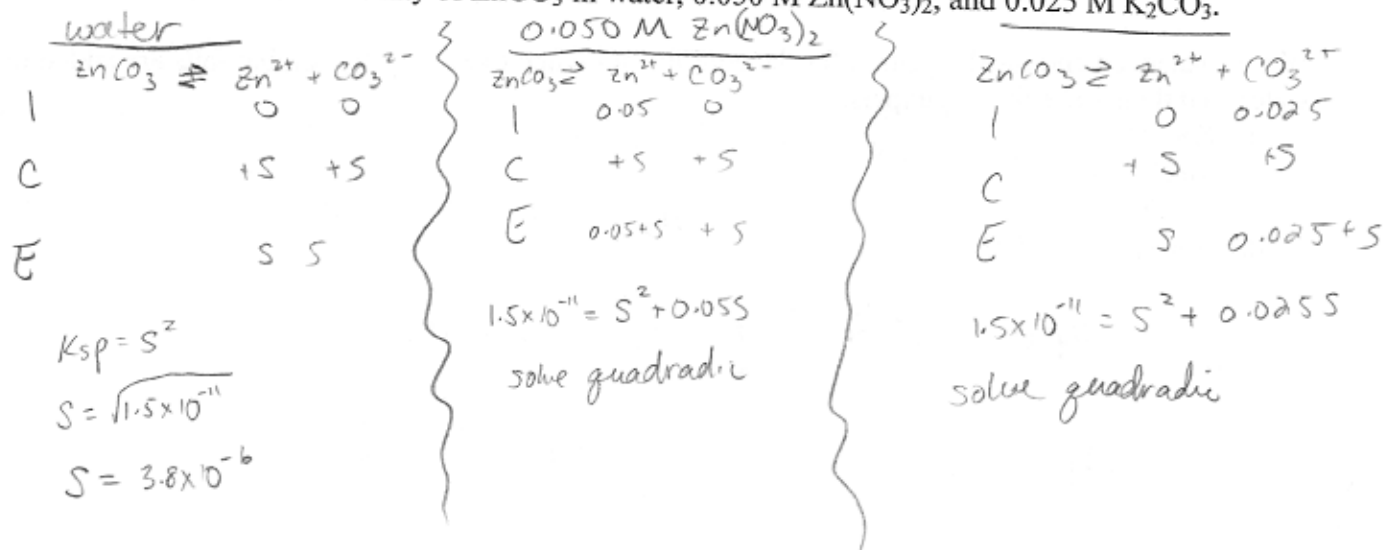 ZnCO3 in water, 0.050 M Zn(NO3)2, and 0.025 M K2CO3.
water
ZnCO3 ⇌ Zn2+ + CO3 2-
I 0 0
C +S +S
E S S
Ksp = S²
S = √1.5×10⁻¹¹
S = 3.8×10⁻⁶
0.050 M Zn(NO3)2
ZnCO3 ⇌ Zn2+ + CO3 2-
I 0.05 0
C +S +S
E 0.05+S +S
1.5×10⁻¹¹ = S² + 0.05S
solve quadradic
ZnCO3 ⇌ Zn2+ + CO3 2-
I 0 0.025
C +S +S
E S 0.025+S
1.5×10⁻¹¹ = S² + 0.025S
solve quadradic